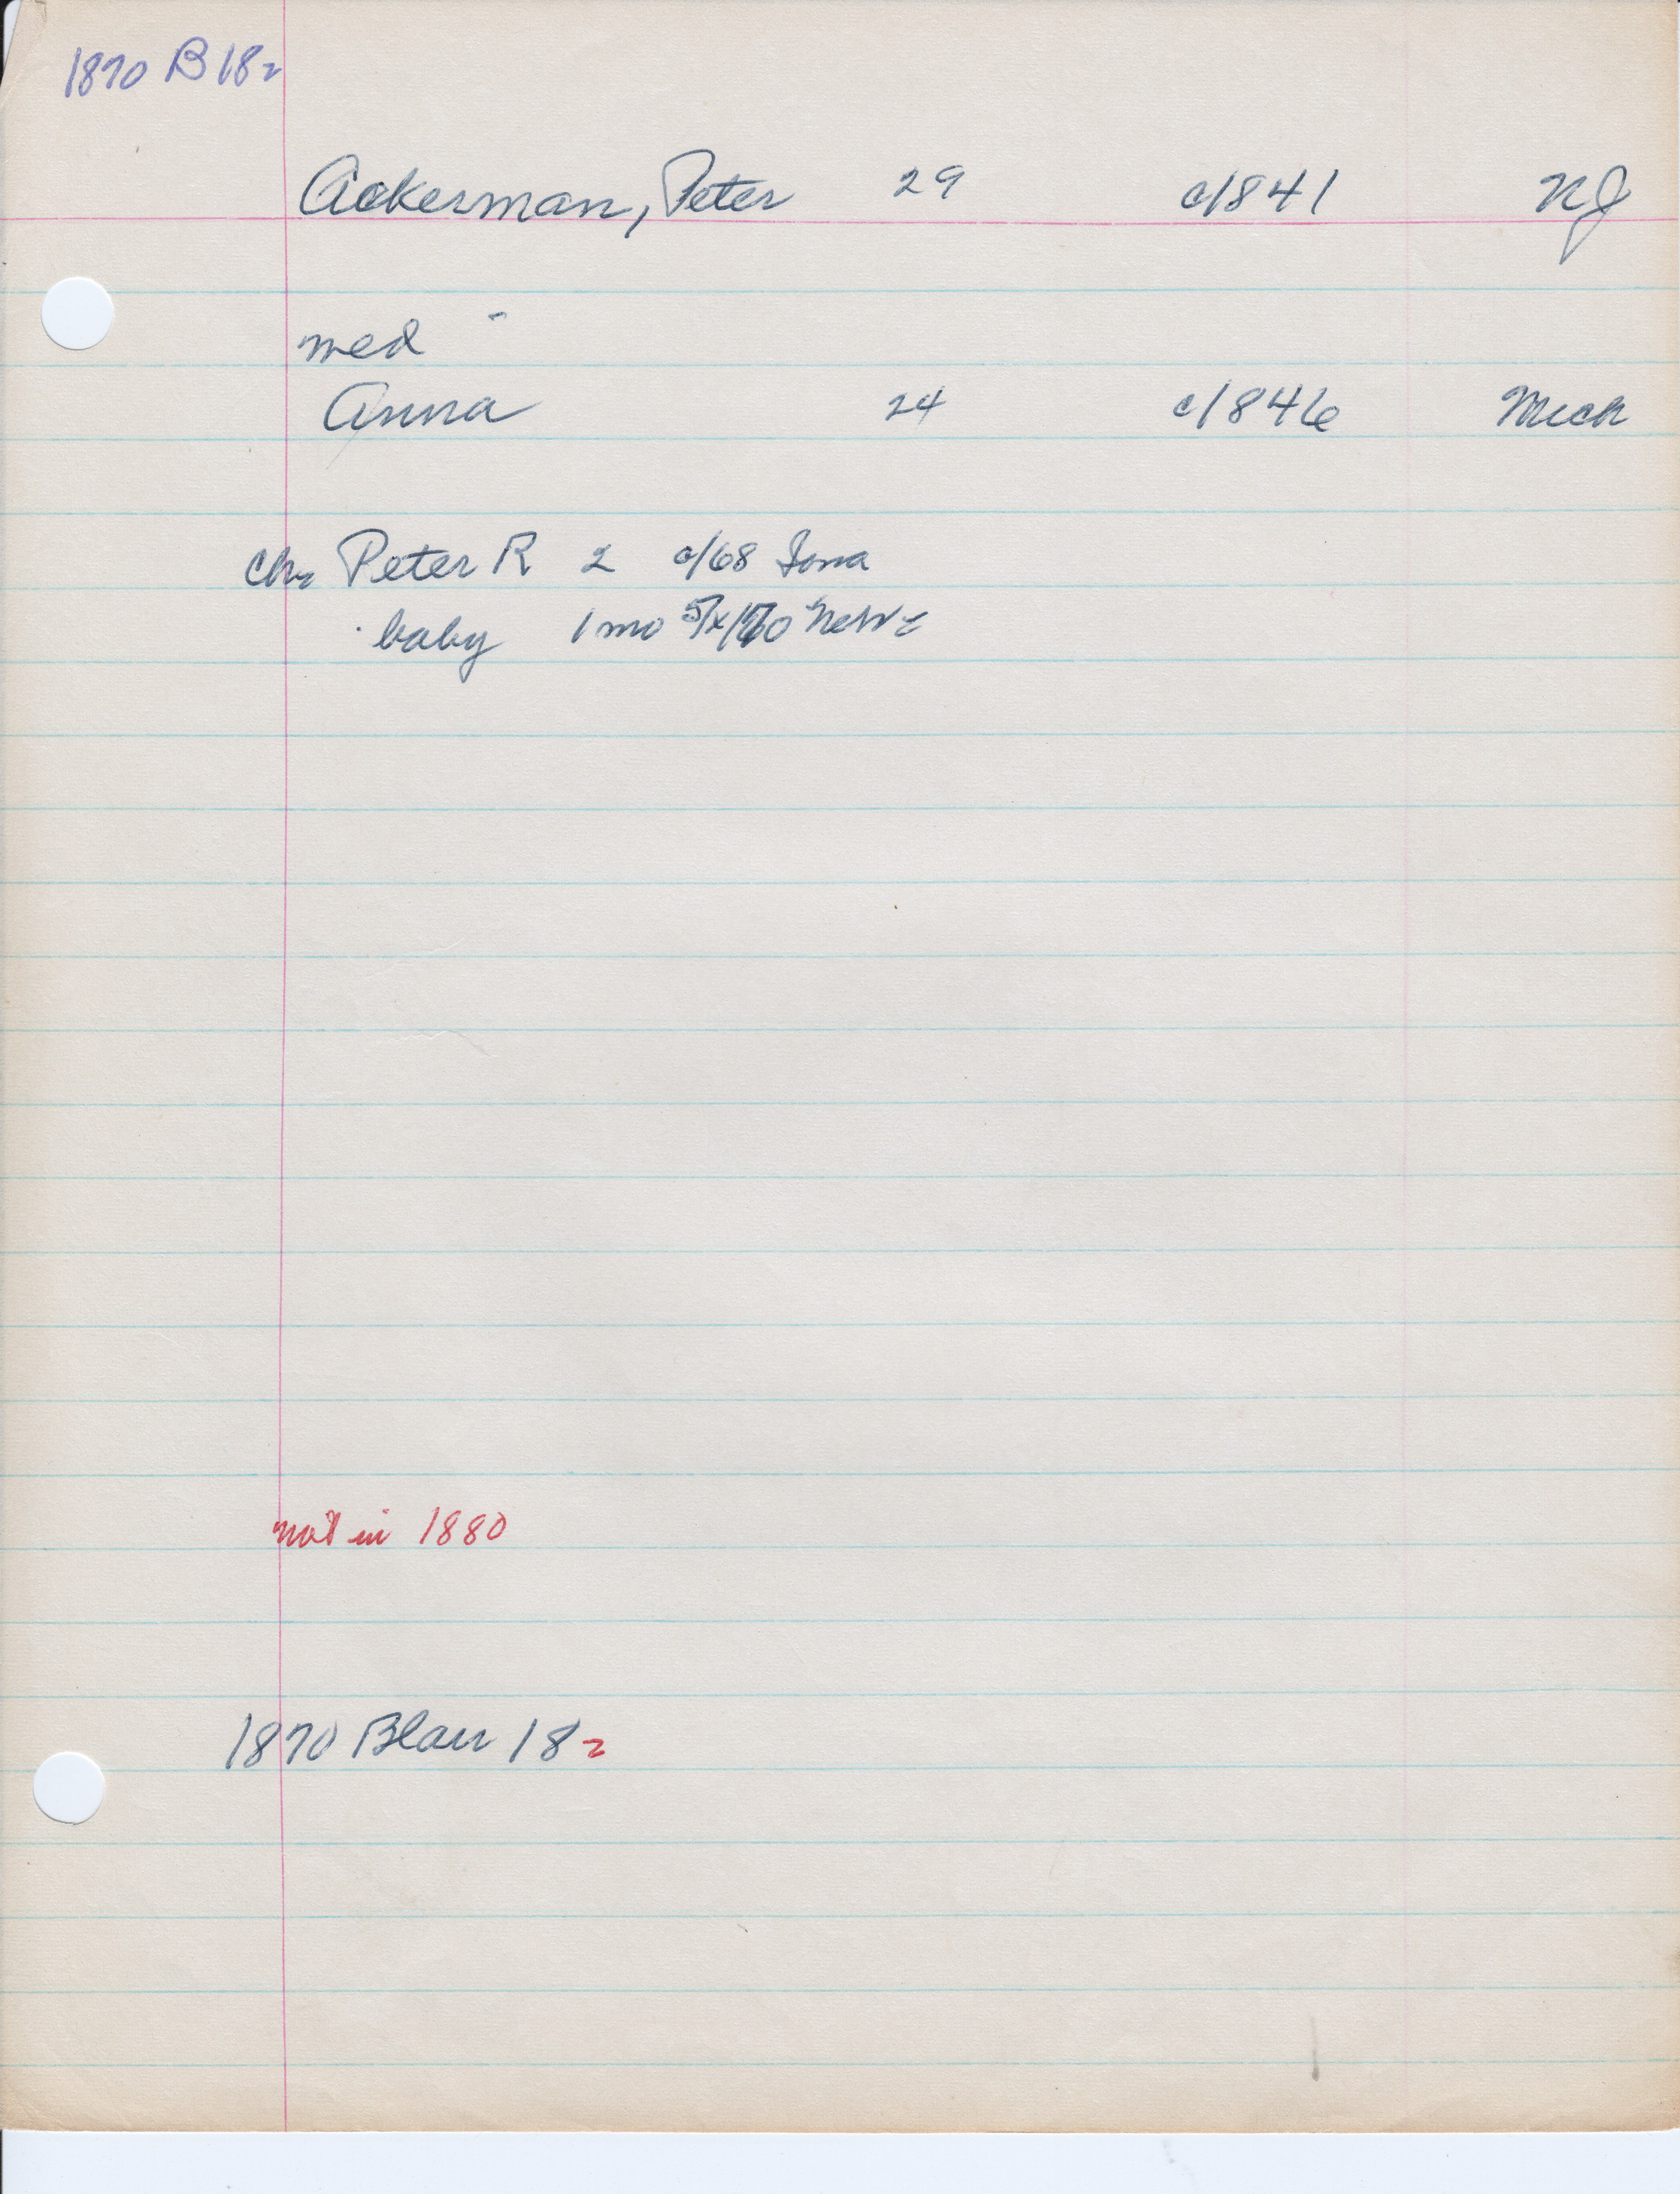 1870 B 182
Ackerman, Peter 29 c1841 NJ
med
Anna 24 c1846 Mich
ch: Peter R 2 c/68 Iowa
baby 1 mo 5/x/70 Nebr
not in 1880
1870 Blair 182